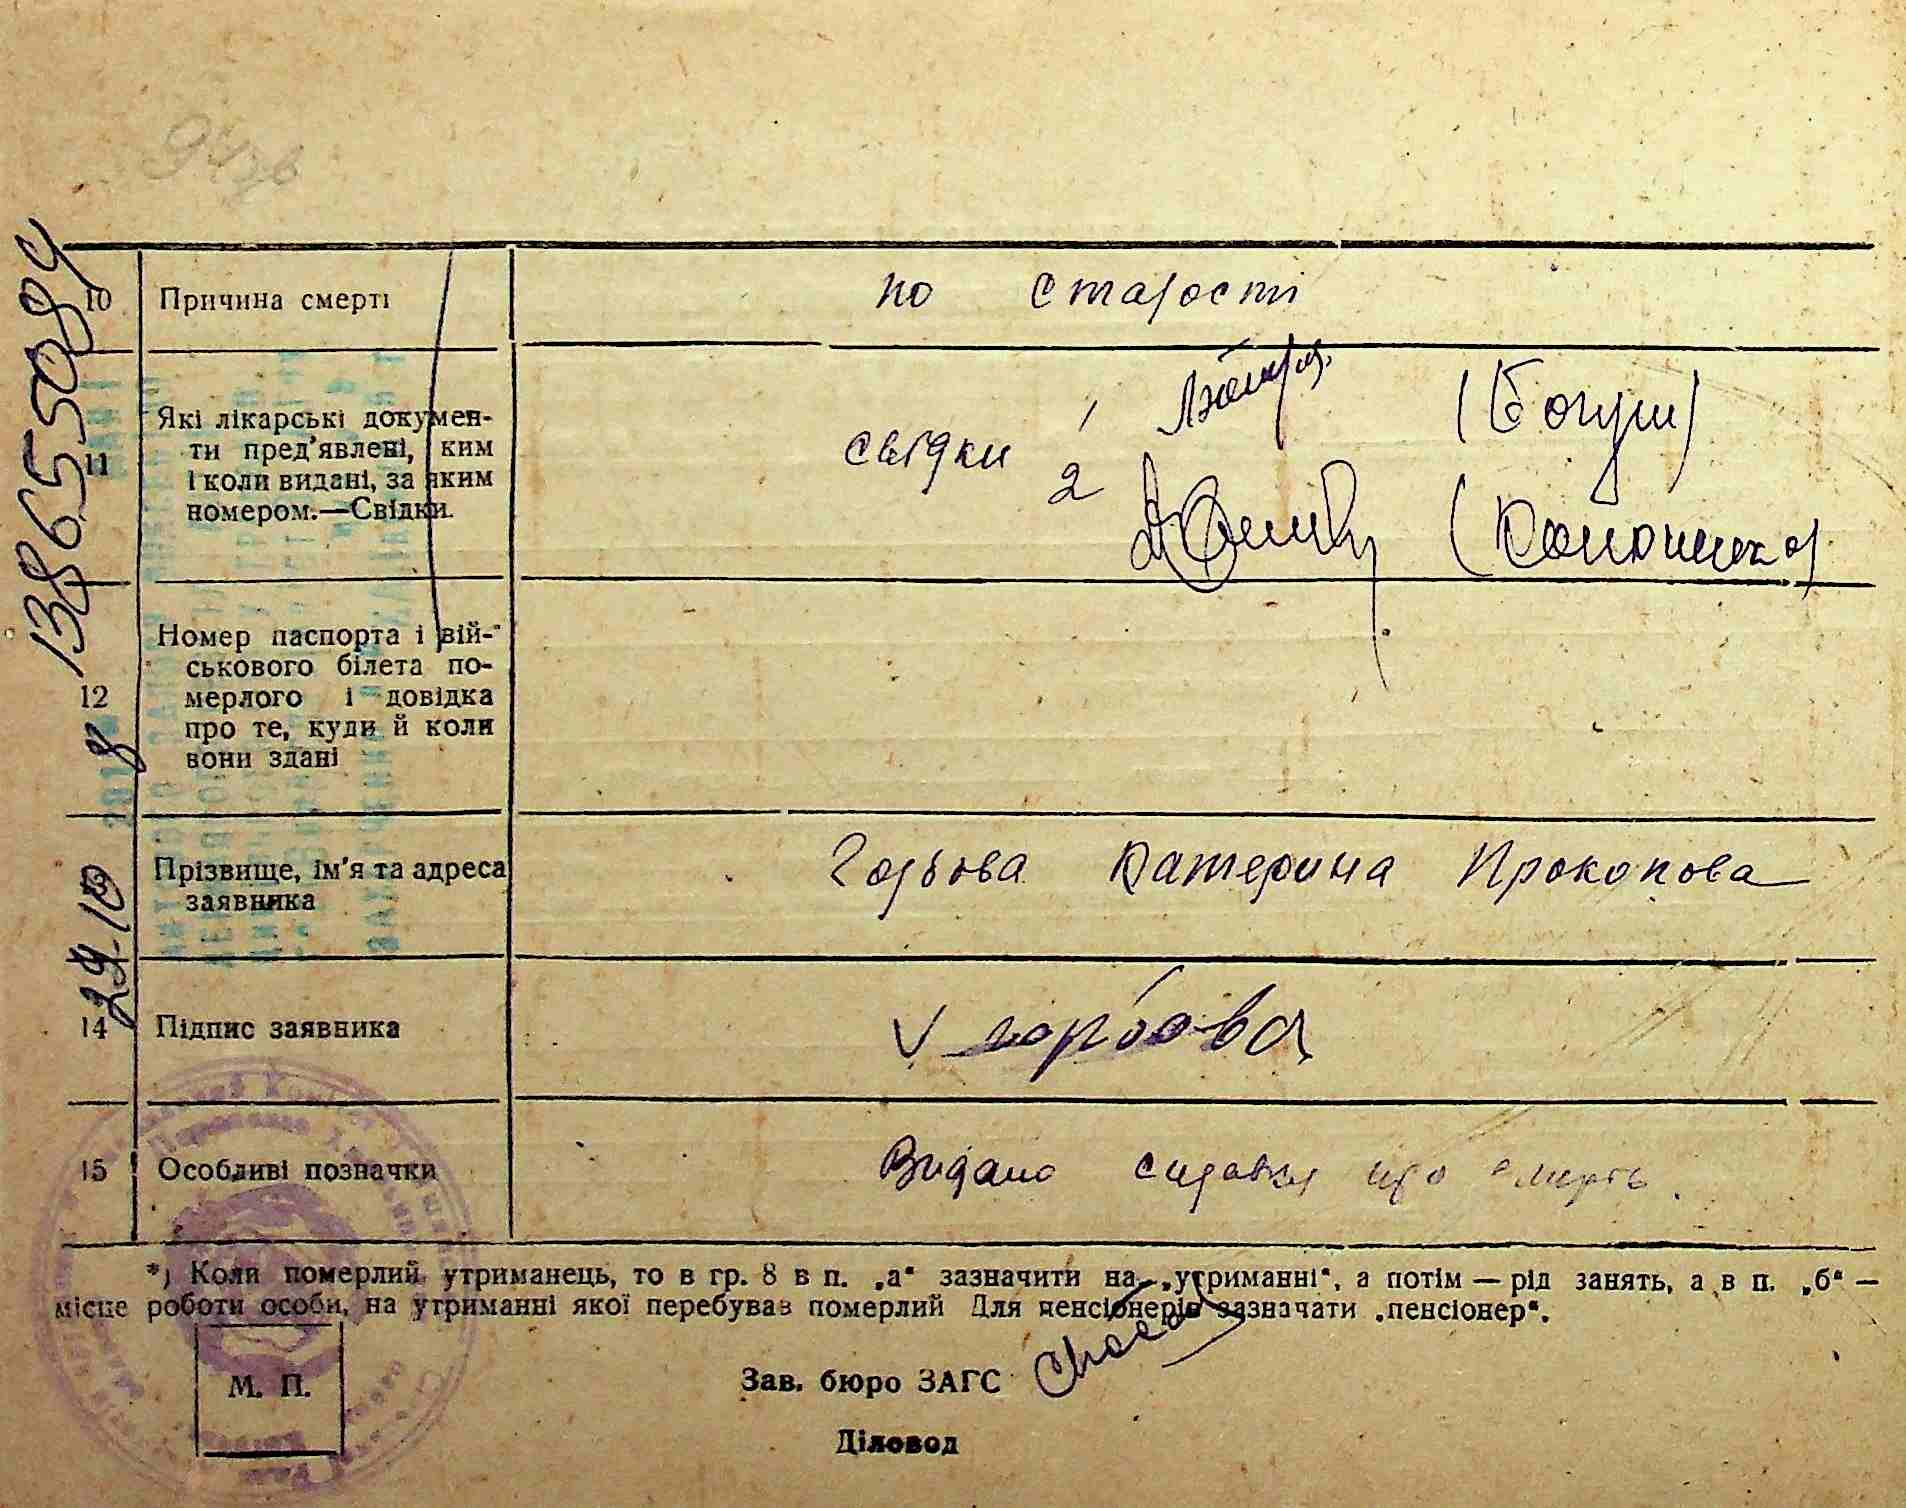 10 Причина смерті по старості
11 Які лікарські докумен-
ти пред'явлені, ким
і коли видані, за яким
номером.—Свідки.
свідки 1 (Богуш)
2
12 Номер паспорта і вій-
ськового білета по-
мерлого і довідка
про те, куди й коли
вони здані
Прізвище, ім'я та адреса
заявника
Горбова Катерина Прокопова
14 Підпис заявника V горбова
15 Особливі позначки Видано справку про смерть.
*) Коли померлий утриманець, то в гр. 8 в п. „а“ зазначити на „утриманні“, а потім — рід занять, а в п. „б“ —
місце роботи особи, на утриманні якої перебував померлий Для пенсіонерів зазначати „пенсіонер“.
М. П.
Зав. бюро ЗАГС
Діловод
1386555084
29-10